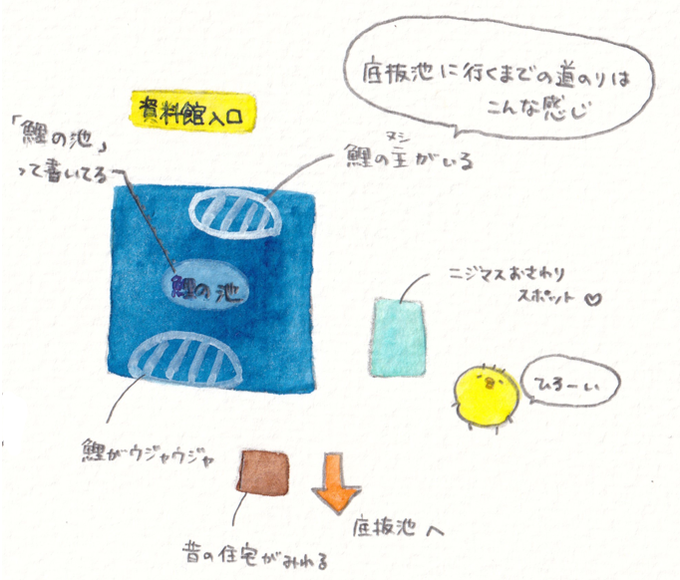 底抜池に行くまでの道のりは
こんな感じ
資料館入口
「鯉の池」
って書いてる
ヌシ
鯉の主がいる
鯉の池
ニジマスおさわり
スポット♡
ひろーい
鯉がウジャウジャ
底抜池へ
昔の住宅がみれる